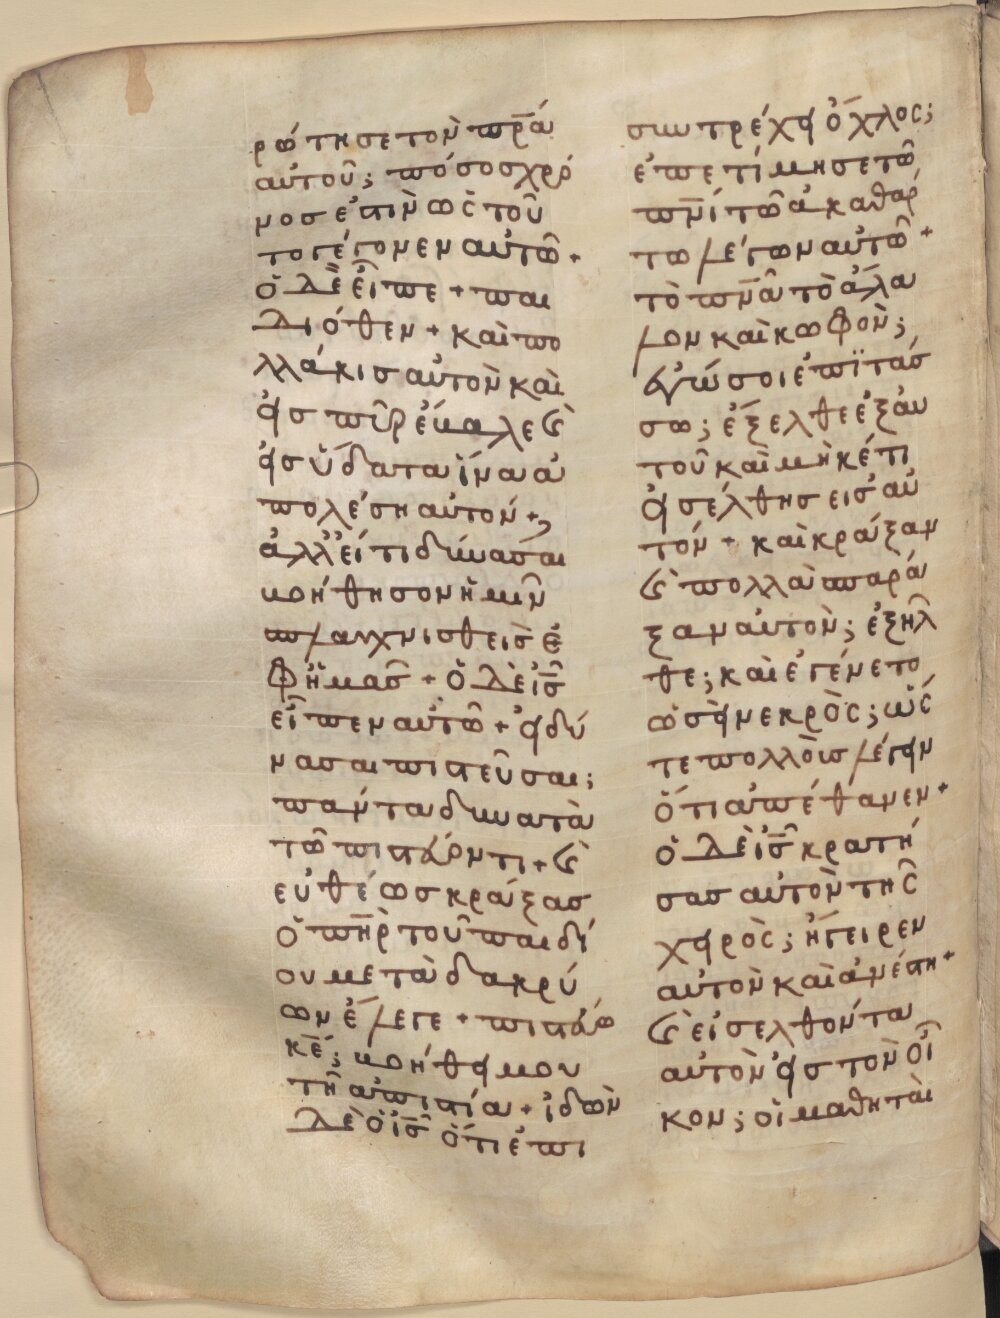 ρώτησε τὸν πρ̅α
αὐτοῦ; πόσος χρό
νος ἐστὶν ὡς τοῦ
το γέγονεν αὐτῶ +
ὁ δὲ εἶπε + παι
διόθεν + καὶ πο
λλάκις αὐτὸν καὶ
εἰς πῦρ ἔβαλε καὶ
εἰς ὕδατα ἵνα ἀ
πολέση αὐτόν +,
ἀλλ' εἴ τι δύνασαι
βοήθησον ἡμῖν
σπλαγχνισθεὶς ἐ
φ' ἡμᾶς + ὁ δὲ ι̅ς̅
εἶπεν αὐτῶ + εἰ δύ
νασαι πιστεῦσαι;
πάντα δυνατὰ
τῶ πιστεύοντι + καὶ
εὐθέως κράξας
ὁ πη̅ρ τοῦ παιδί
ου μετὰ δακρύ
ων ἔλεγε + πιστεύω
κ̅ε̅; βοήθει μου
τῆ ἀπιστία + ἰδὼν
δὲ ὁ ι̅ς̅ ὅτι ἐπι
συντρέχει ὄχλος;
ἐπετίμησε τῶ
πν̅ι τῶ ἀκαθάρ
τω λέγων αὐτῶ +
τὸ πν̅α τὸ ἄλα
λον καὶ κωφὸν;
ἐγώ σοι ἐπϊτάσ
σω; ἔξελθε ἐξ αὐ
τοῦ καὶ μηκέτι
εἰσέλθης εἰς αὐ
τόν + καὶ κράξαν
καὶ πολλὰ σπαρά
ξαν αὐτὸν; ἐξῆλ
θε; καὶ ἐγένετο
ὡσεὶ νεκρὸς; ὥσ
τε πολλοὺς λέγειν
ὅτι ἀπέθανεν +
ὁ δὲ ι̅ς̅ κρατή
σας αὐτὸν τῆς
χειρὸς; ἤγειρεν
αὐτὸν καὶ ἀνέστη +
καὶ εἰσελθόντα
αὐτὸν εἰς τὸν οἶ
κον; οἱ μαθηταὶ